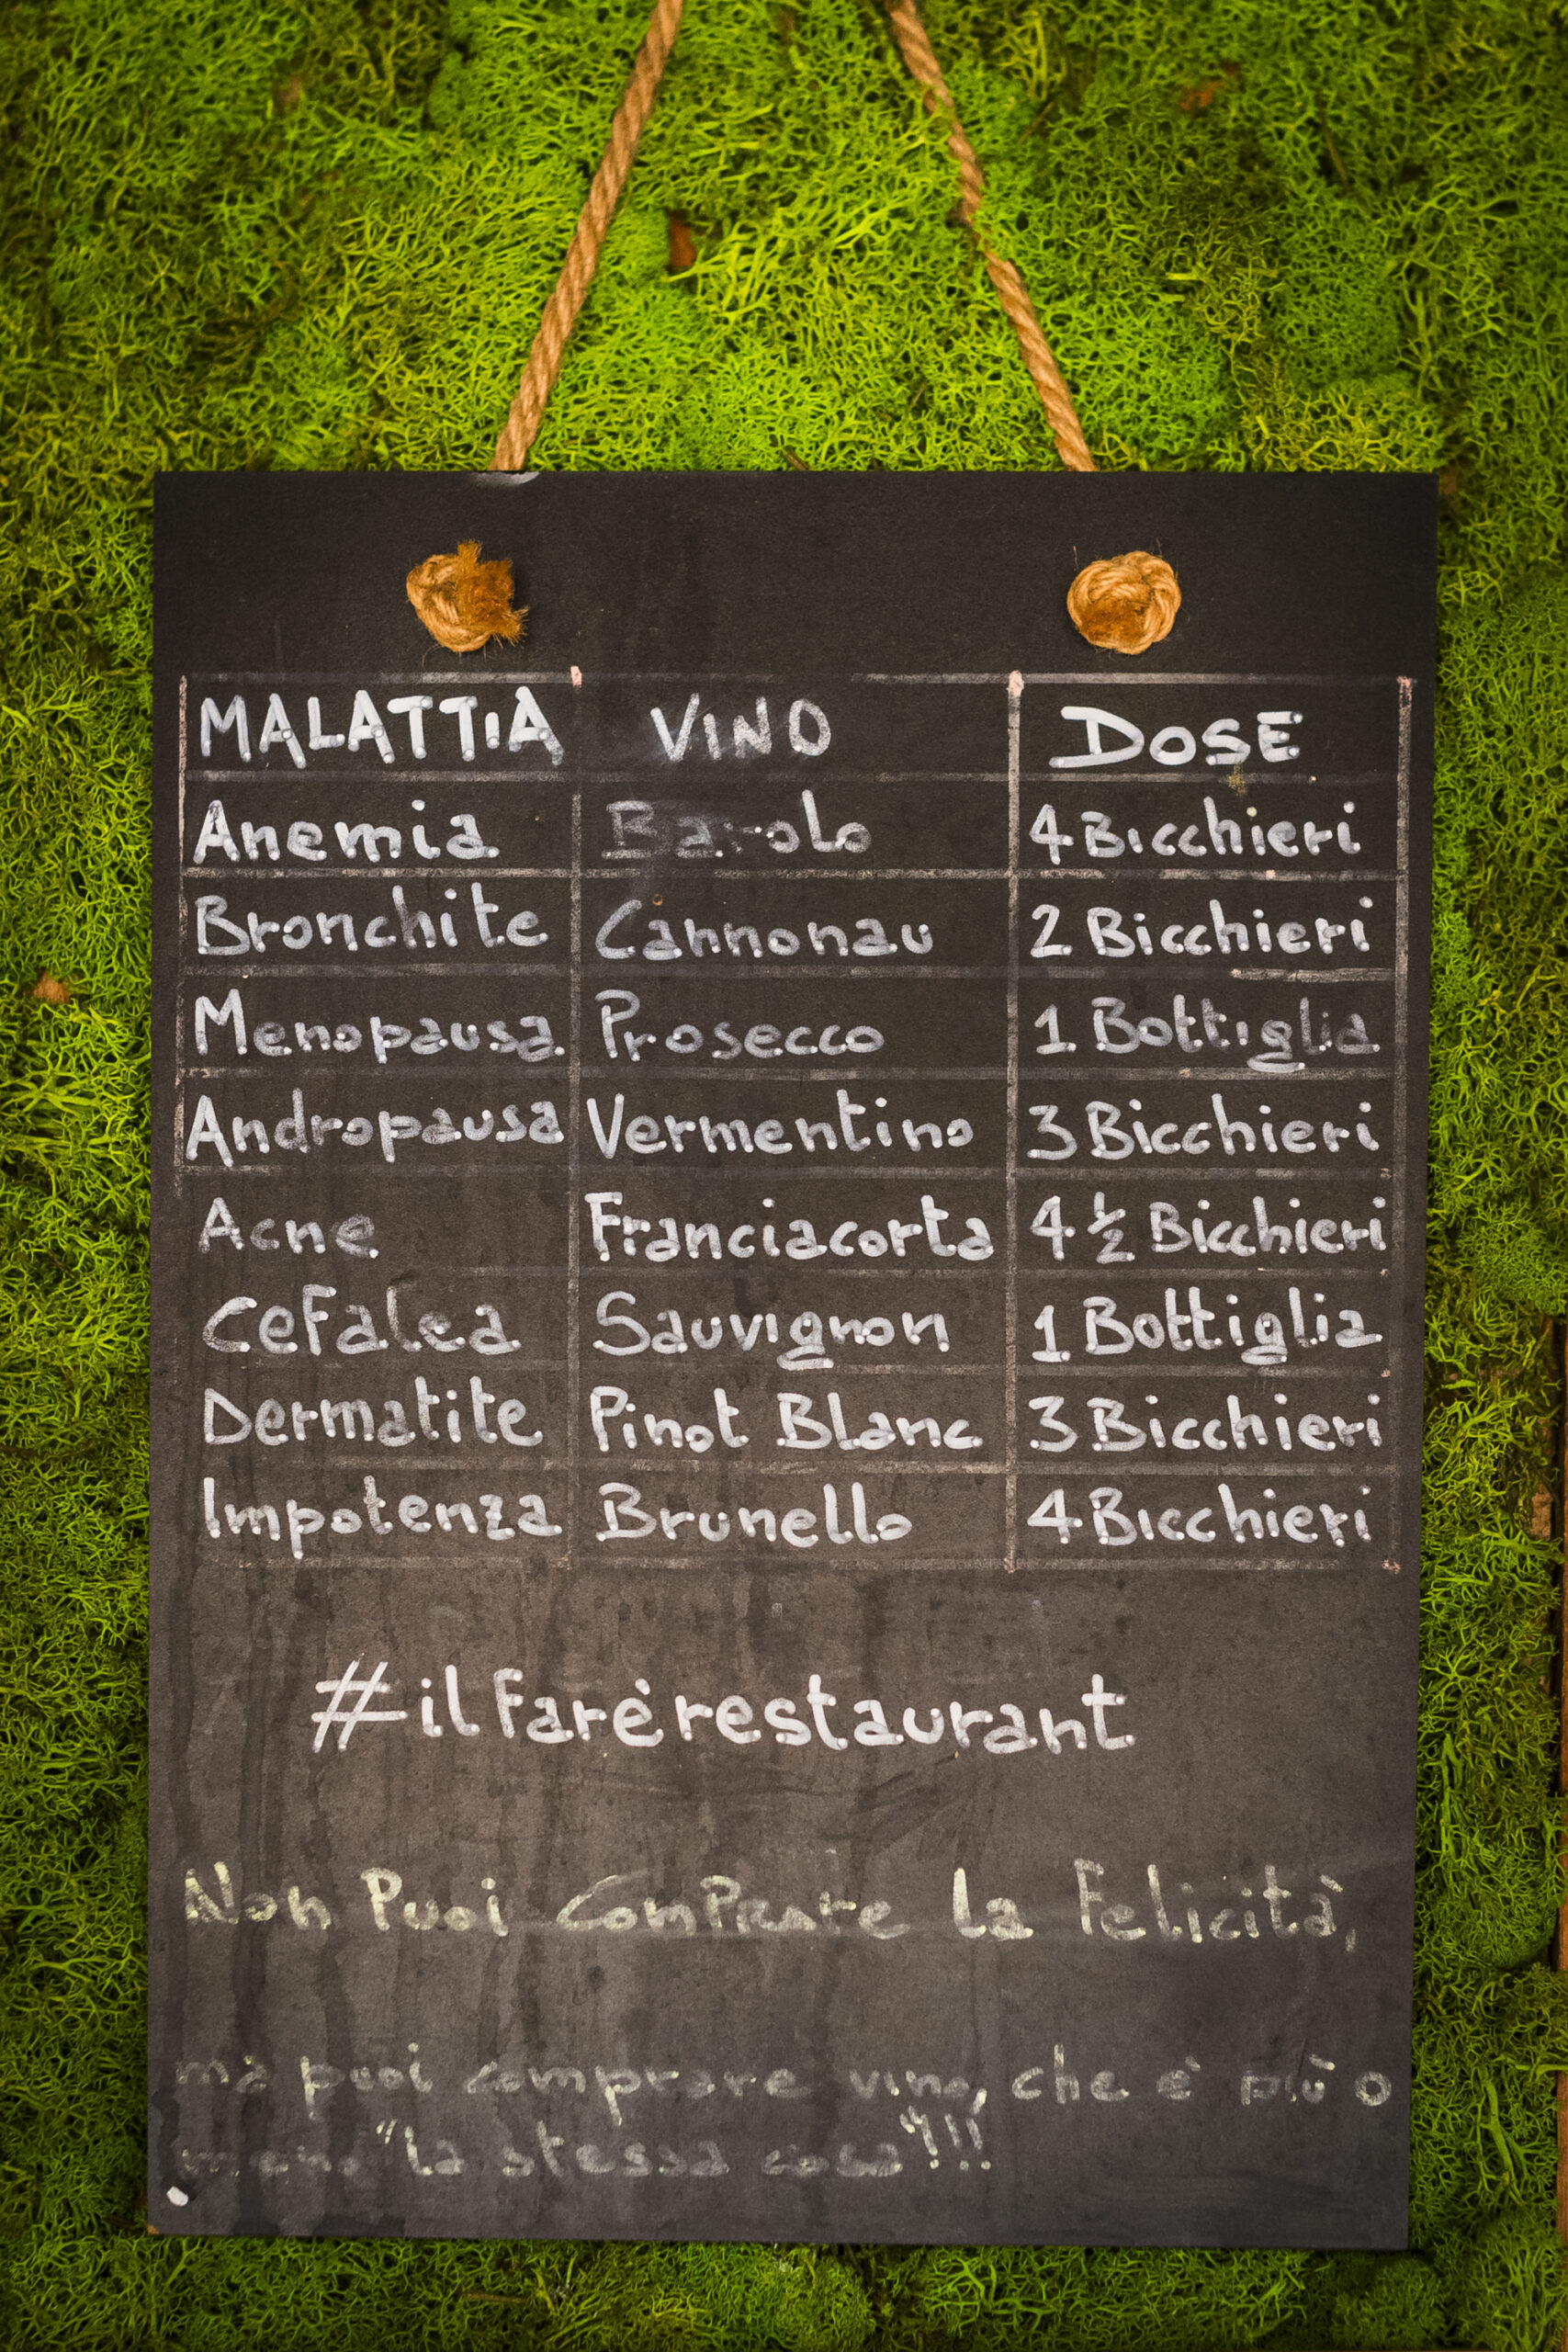 MALATTIA VINO DOSE
Anemia Barolo 4 Bicchieri
Bronchite Cannonau 2 Bicchieri
Menopausa Prosecco 1 Bottiglia
Andropausa Vermentino 3 Bicchieri
Acne Franciacorta 4 ½ Bicchieri
Cefalea Sauvignon 1 Bottiglia
Dermatite Pinot Blanc 3 Bicchieri
Impotenza Brunello 4 Bicchieri
#ilfarèrestaurant
Non Puoi Comprare la Felicità,
ma puoi comprare vino, che è più o
meno "la stessa cosa"!!!